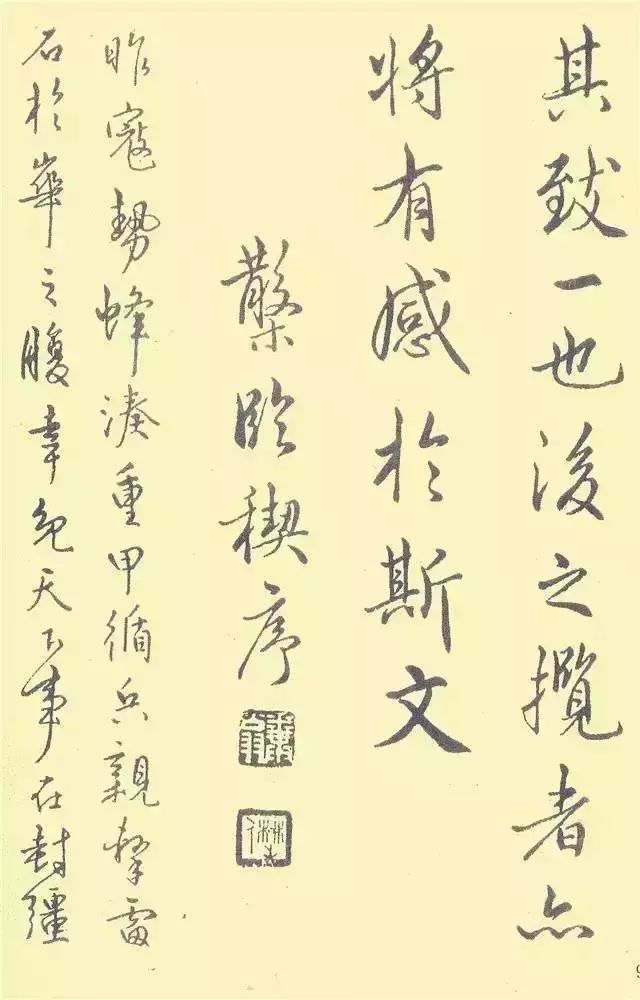 其致一也後之攬者亦
將有感於斯文
散臨稧序
昨寇勢蜂湊重甲循兵親擊雷
石於華之腹幸免天下事在封疆
9